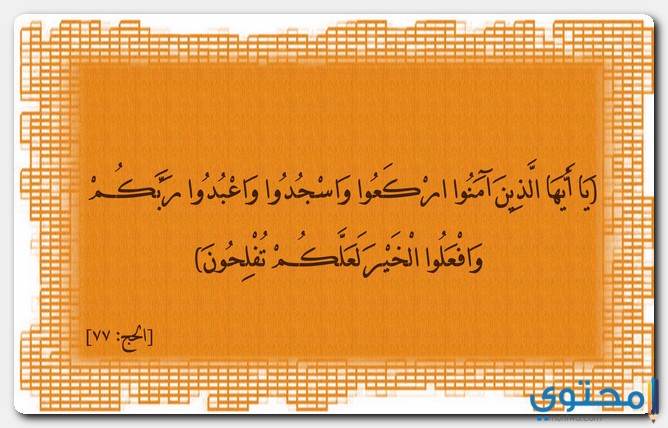 (يَا أَيُّهَا الَّذِينَ آمَنُوا ارْكَعُوا وَاسْجُدُوا وَاعْبُدُوا رَبَّكُمْ
وَافْعَلُوا الْخَيْرَ لَعَلَّكُمْ تُفْلِحُونَ)
[الحج: ٧٧]
محتوى